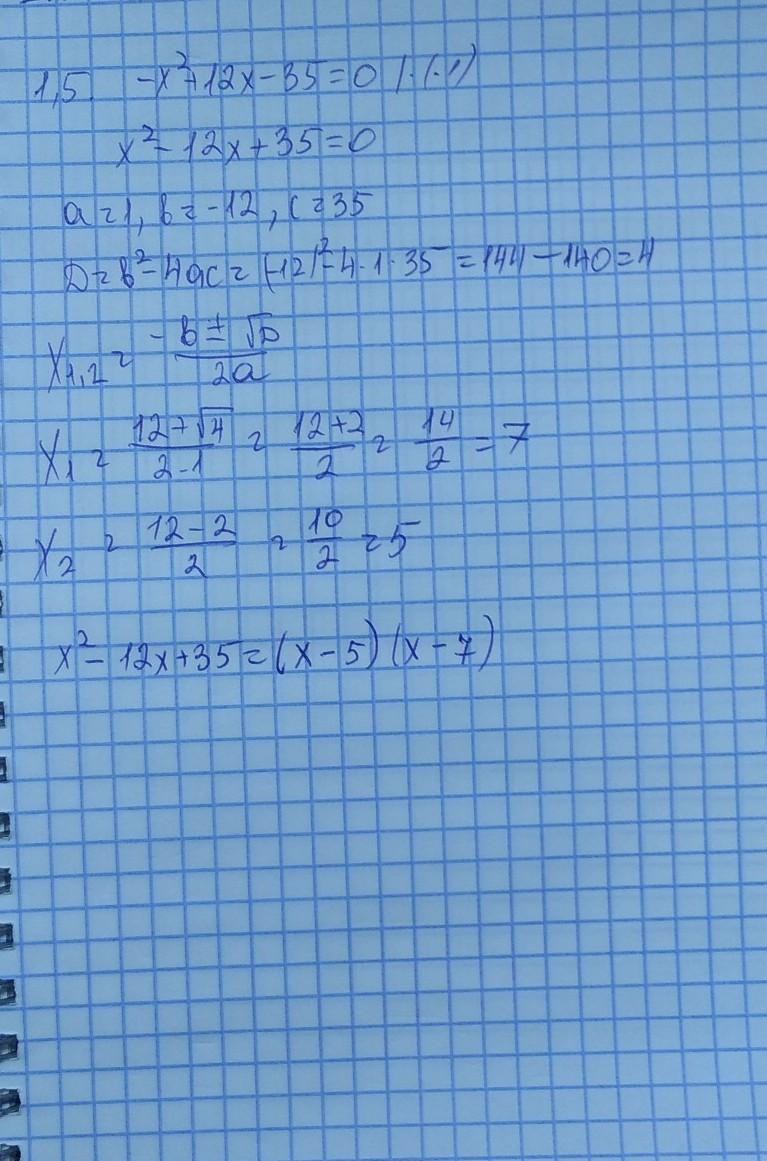 1,5. -x²+12x-35=0 |·(-1)
x²-12x+35=0
a=1, b=-12, c=35
D=b²-4ac=(-12)²-4·1·35=144-140=4
x₁,₂ = (-b±√D)/(2a)
x₁ = (12+√4)/(2·1) = (12+2)/2 = 14/2 = 7
x₂ = (12-2)/2 = 10/2 = 5
x²-12x+35=(x-5)(x-7)